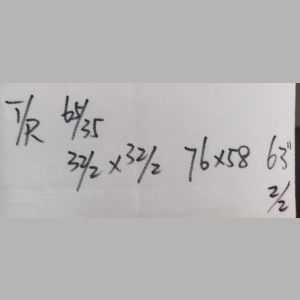 T/R 65/35
32/2 x 32/2 76x58 63"
2/2